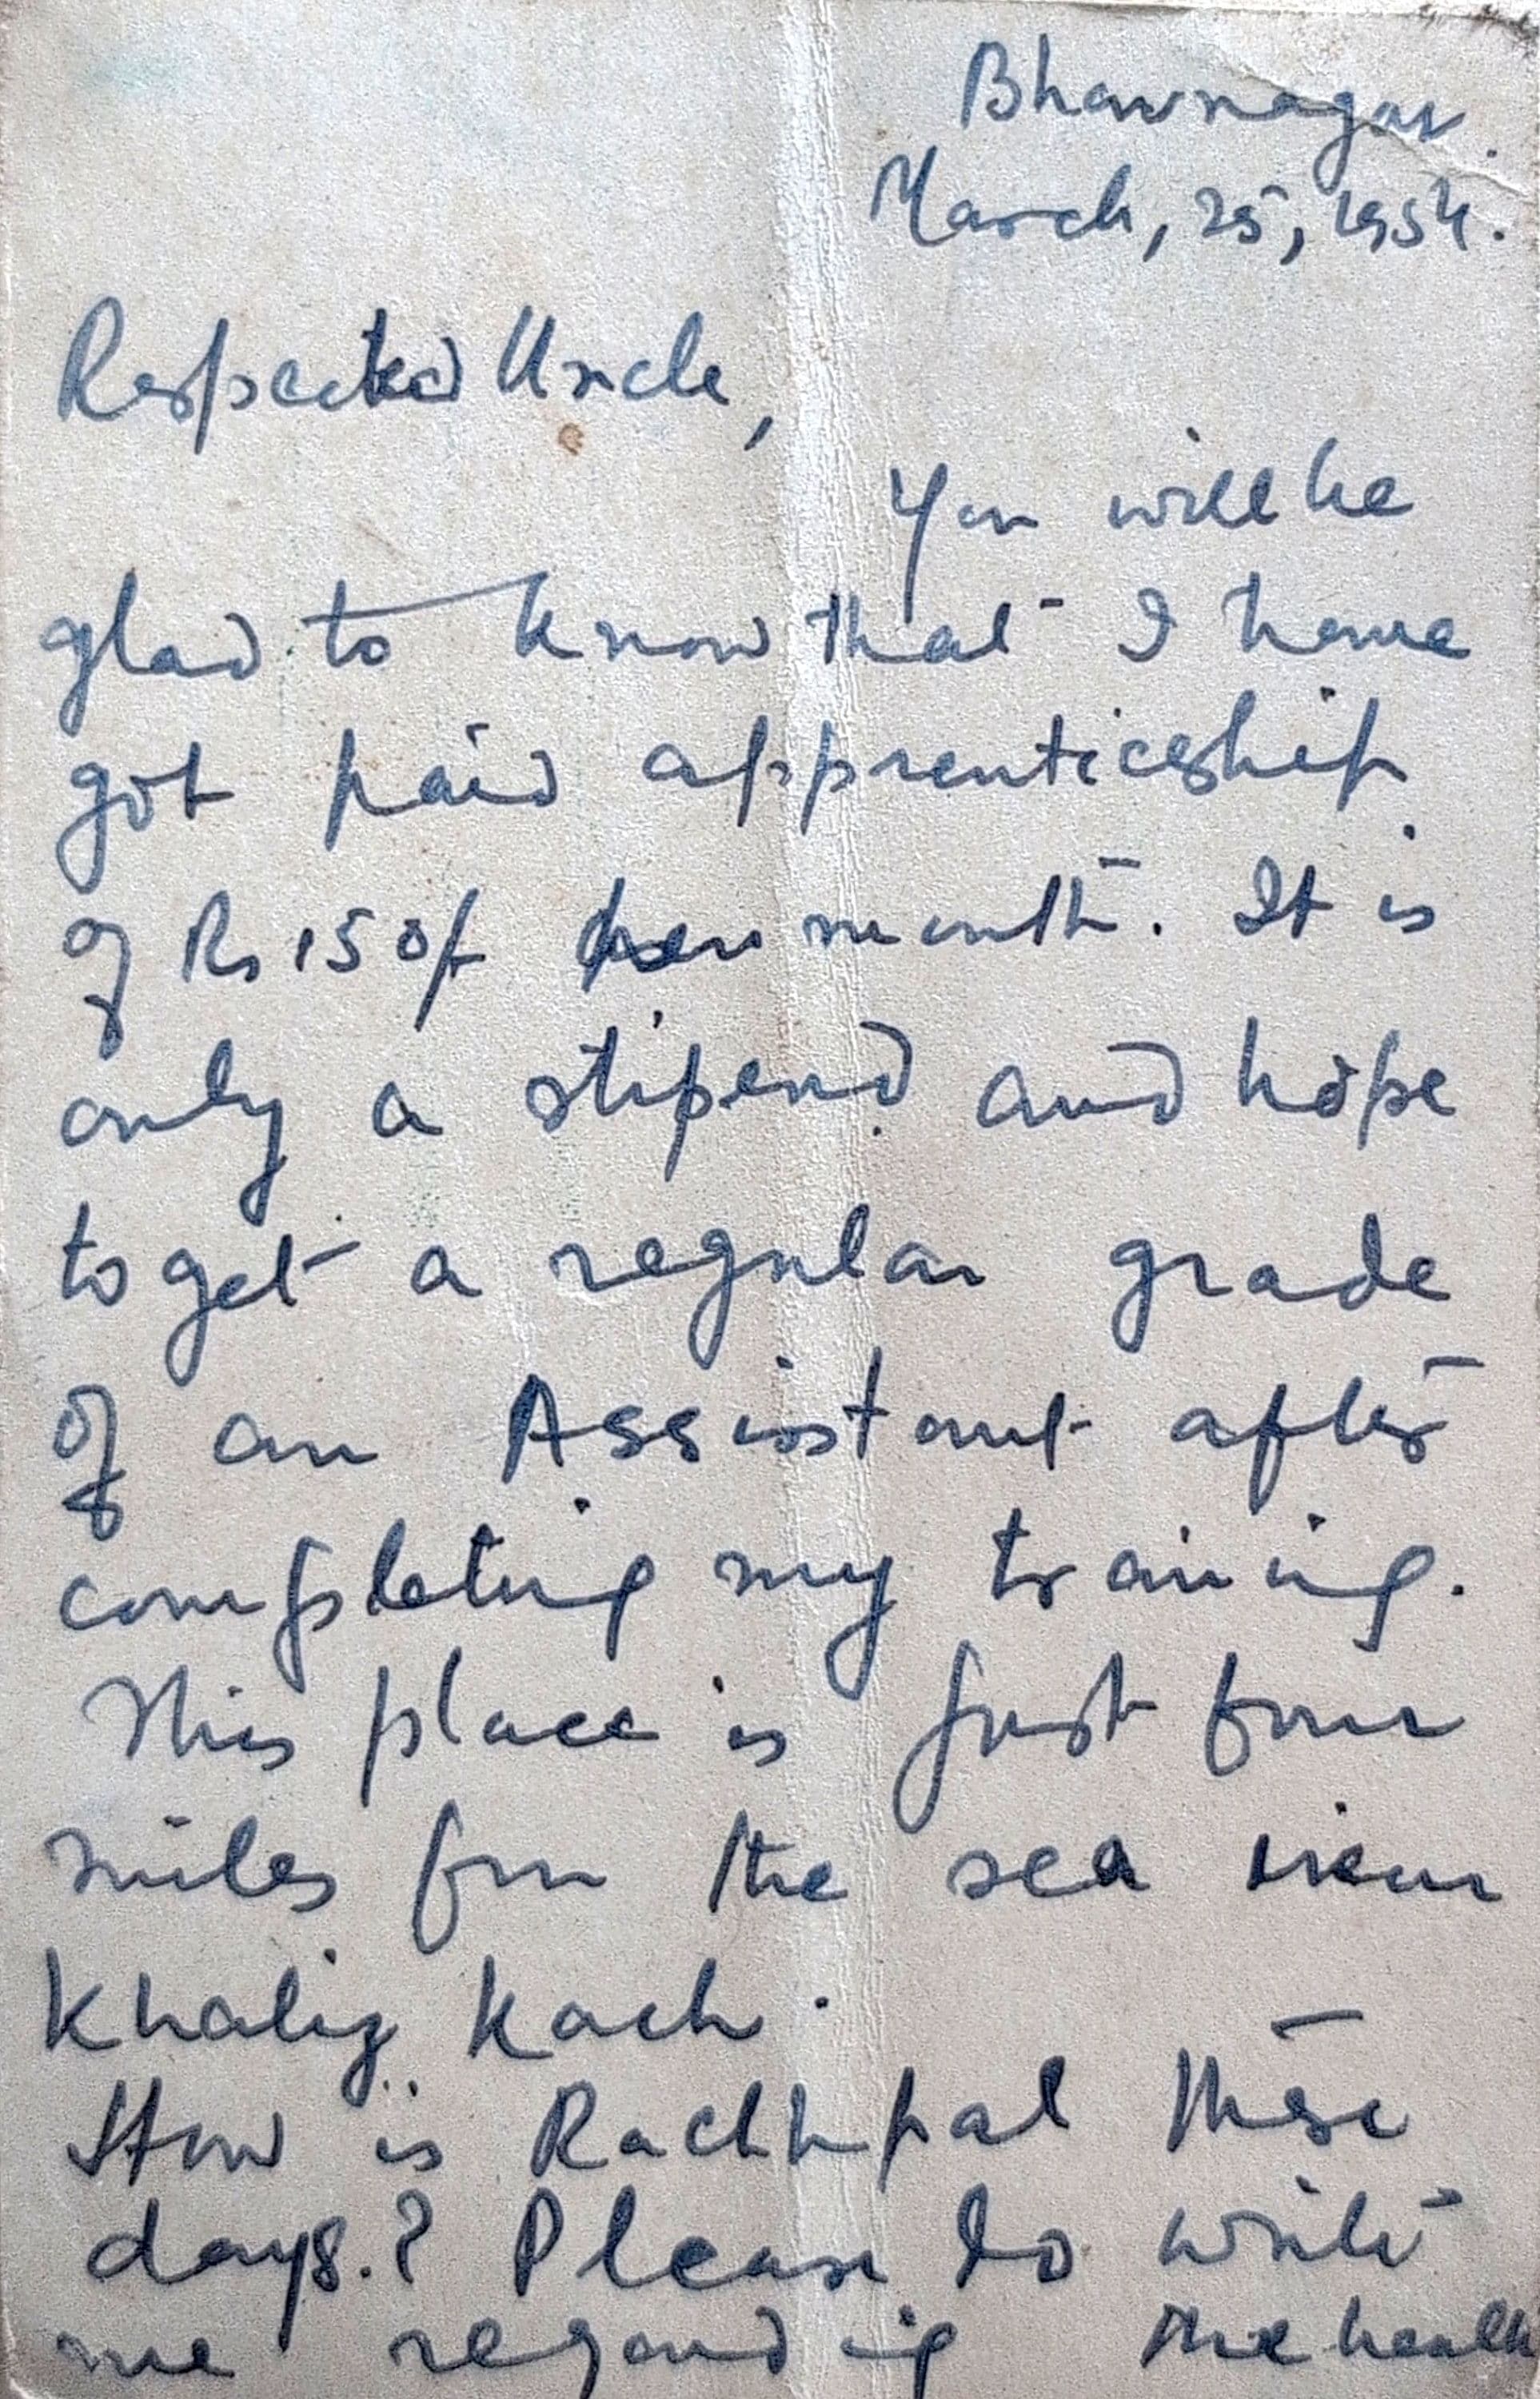 Bhavnagar.
March, 25, 1954.
Respected Uncle,
You will be
glad to know that I have
got paid apprenticeship
of Rs 150/- per month. It is
only a stipend and hope
to get a regular grade
of an Assistant after
completing my training.
This place is just four
miles from the sea near
Khalig Kach.
How is Rachhpal these
days.? Please do write
me regarding the health